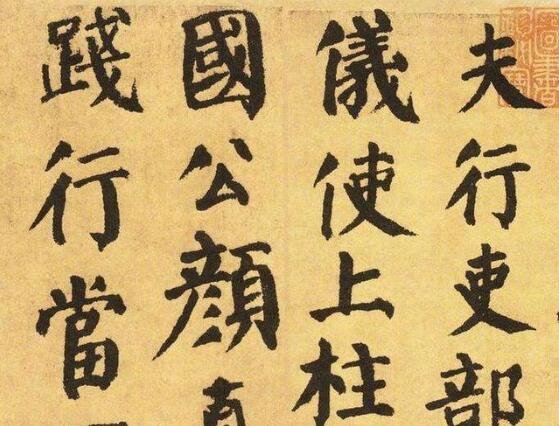 夫行吏部
儀使上柱
國公顏真
踐行當